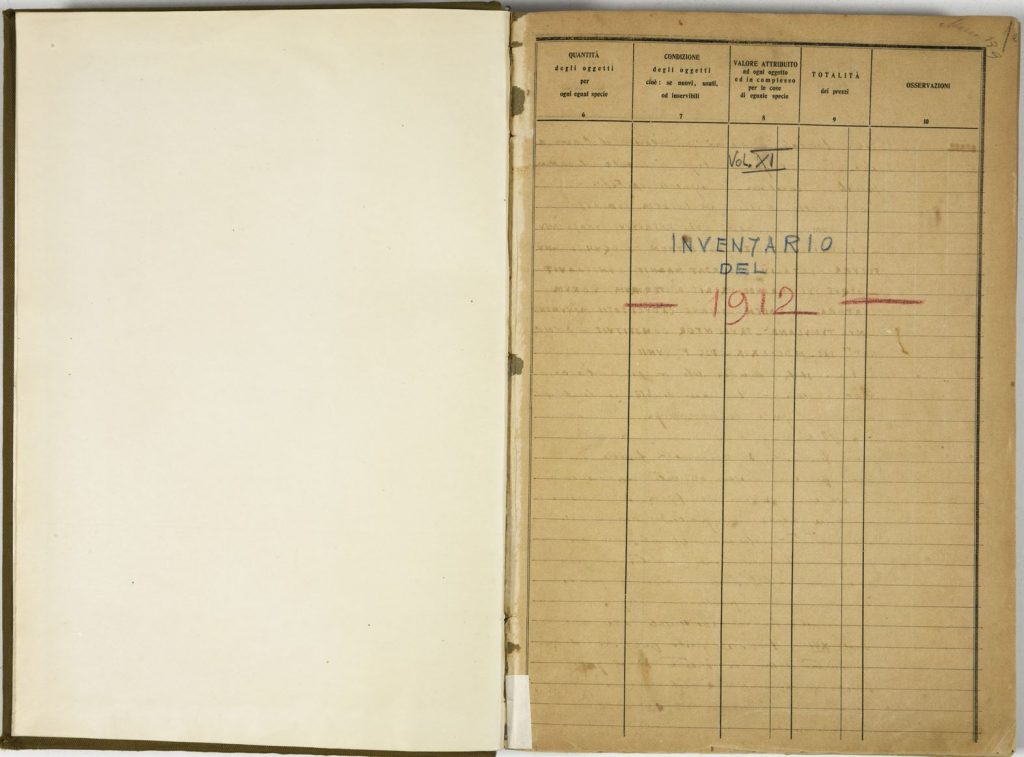 QUANTITÀ
degli oggetti
per
ogni egual specie
6
CONDIZIONE
degli oggetti
cioè: se nuovi, usati,
od inservibili
7
VALORE ATTRIBUITO
ad ogni oggetto
ed in complesso
per le cose
di eguale specie
8
TOTALITÀ
dei prezzi
9
OSSERVAZIONI
10
VOL. XI
INVENTARIO
DEL
— 1912 —